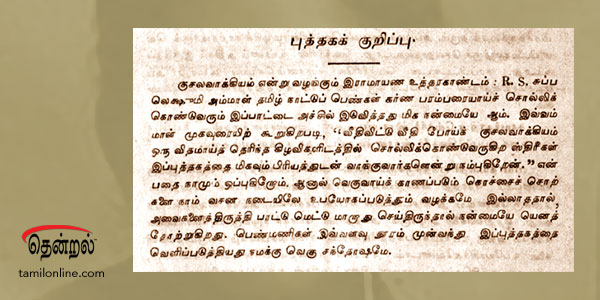 புத்தகக் குறிப்பு.
குசலவாக்கியம் என்று வழங்கும் இராமாயண உத்தரகாண்டம் : R. S. சுப்ப
லெக்ஷுமி அம்மாள் தமிழ் நாட்டுப் பெண்கள் கர்ண பரம்பரையாய்ச் சொல்லிக்
கொண்டுவரும் இப்பாட்டை அச்சில் இடுவித்தது மிக நன்மையே ஆம். இவ்வம்
மாள் முகவுரையிற் கூறுகிறபடி, "வீதிவிட்டு வீதி போய்க் குசலவாக்கியம்
ஒரு விதமாய்த் தெரிந்த கிழவிகளிடத்தில் சொல்லிக்கொண்டுவருகிற ஸ்திரீகள்
இப்புத்தகத்தை மிகவும் பிரியத்துடன் வாங்குவார்களென்று நம்புகிறேன்." என்
பதை நாமும் ஒப்புகிறோம். ஆனால் வெகுவாய்க் காணப்படும் கொச்சைச் சொற்
களை நாம் வசன நடையிலே உபயோகப்படுத்தும் வழக்கமே இல்லாததால்,
அவைகளைத்திருத்தி பாட்டு மெட்டு மாறாது செய்திருந்தால் நன்மையே யெனத்
தோற்றுகிறது. பெண்மணிகள் இவ்வளவு தூரம் முன்வந்து இப்புத்தகத்தை
வெளிப்படுத்தியது நமக்கு வெகு சந்தோஷமே.
தென்றல்
tamilonline.com